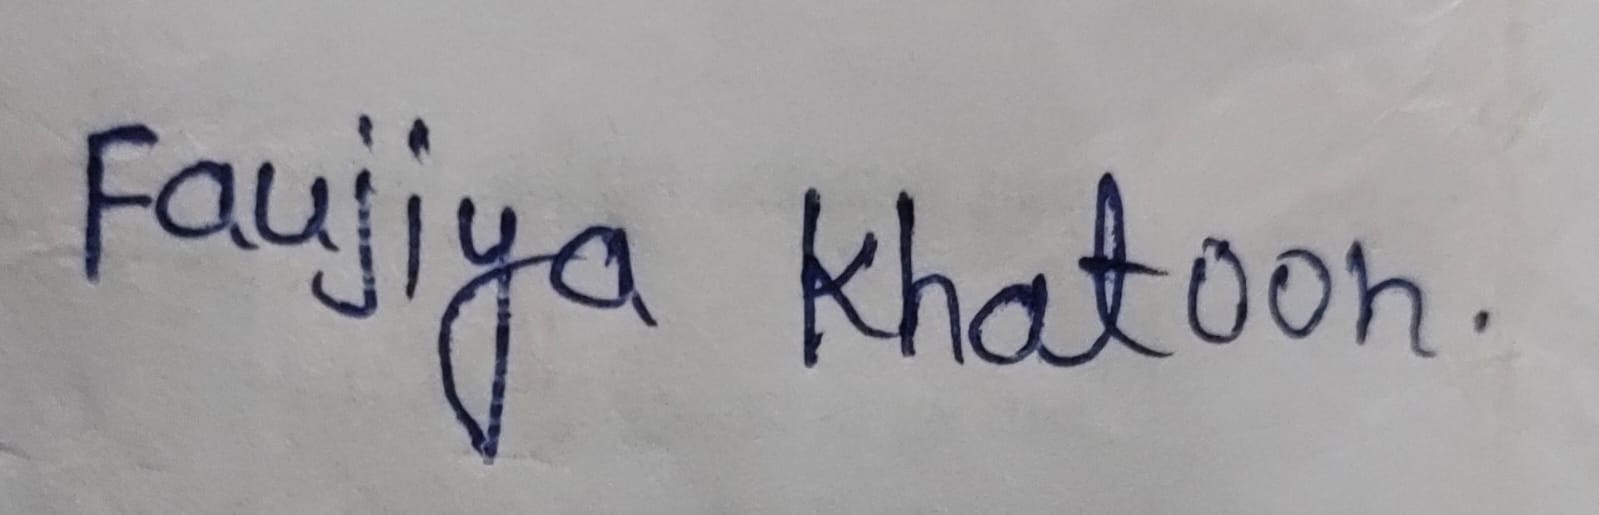 Faujiya Khatoon.